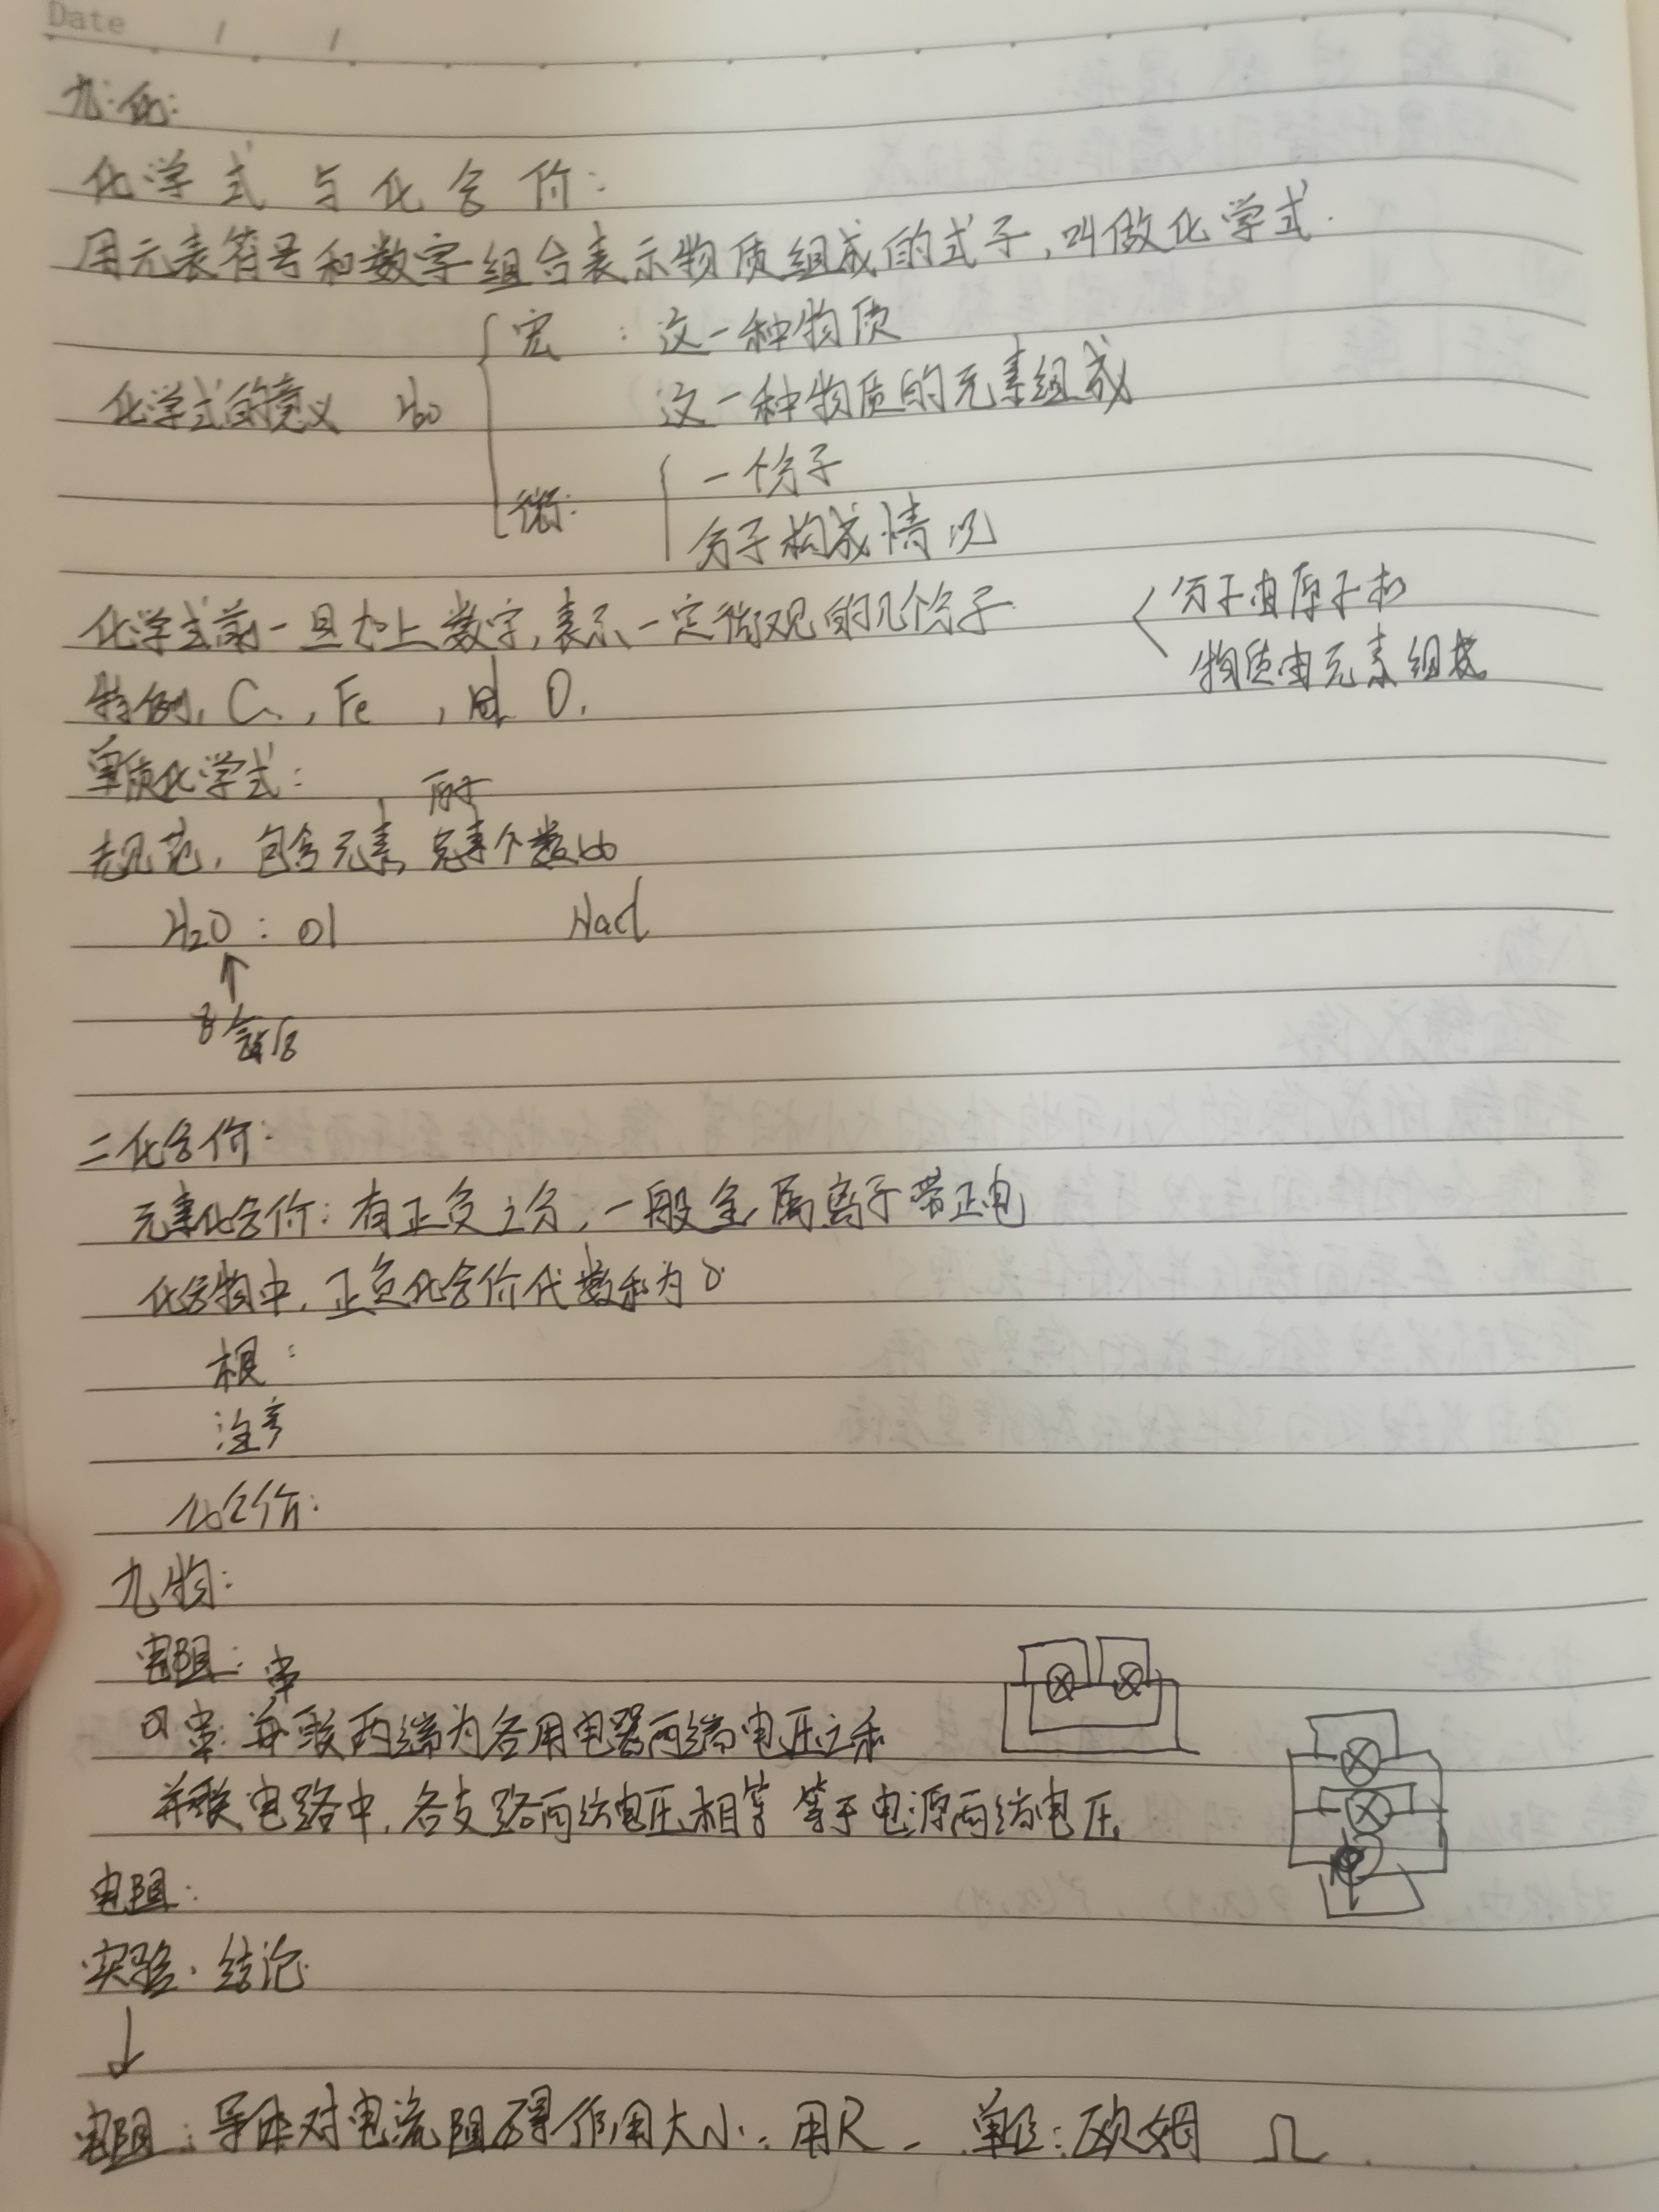 Date / /
九化:
化学式与化合价:
用元素符号和数字组合表示物质组成的式子,叫做化学式.
宏:这一种物质
化学式的意义 H₂O
这一种物质的元素组成
一个分子
微:
分子构成情况
化学式前一旦加上数字,表示一定微观的几个分子
分子由原子构
物质由元素组成
特例, C, Fe
单质化学式:
原子
规范,包含元素,个数比
H₂O: NaCl
二化合价:
元素化合价:有正负之分,一般金属离子带正电
化合物中,正负化合价代数和为0
根:
注意
化合价:
九物:
电阻: 串
串联两端为各用电器两端电压之和
并联电路中,各支路两端电压相等 等于电源两端电压
电阻:
实验、结论
电阻:导体对电流阻碍作用大小.用R 单位:欧姆 Ω